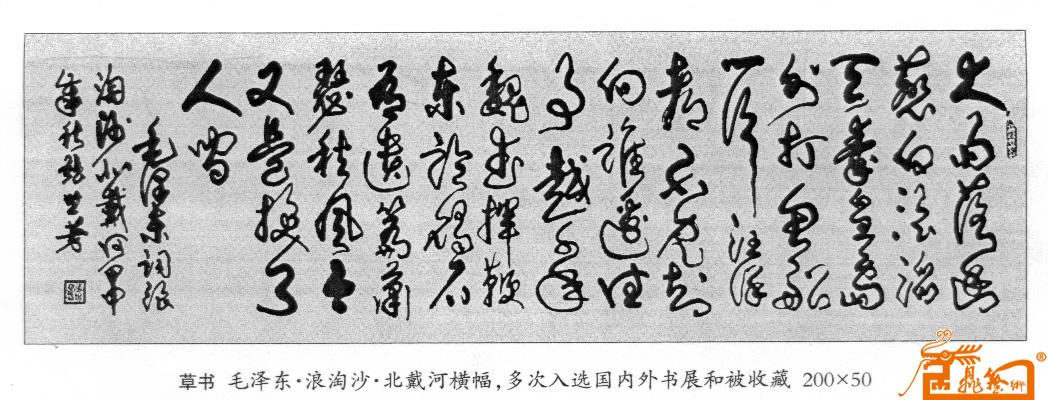 大雨落幽
燕白浪滔
天秦皇島
外打魚船
一片汪洋
都不見知
向誰邊往
事越千年
魏武揮鞭
東臨碣石
有遺篇蕭
瑟秋風今
又是換了
人間
毛澤東詞浪
淘沙北戴河甲申
年秋
草书 毛泽东·浪淘沙·北戴河横幅,多次入选国内外书展和被收藏 200×50
®